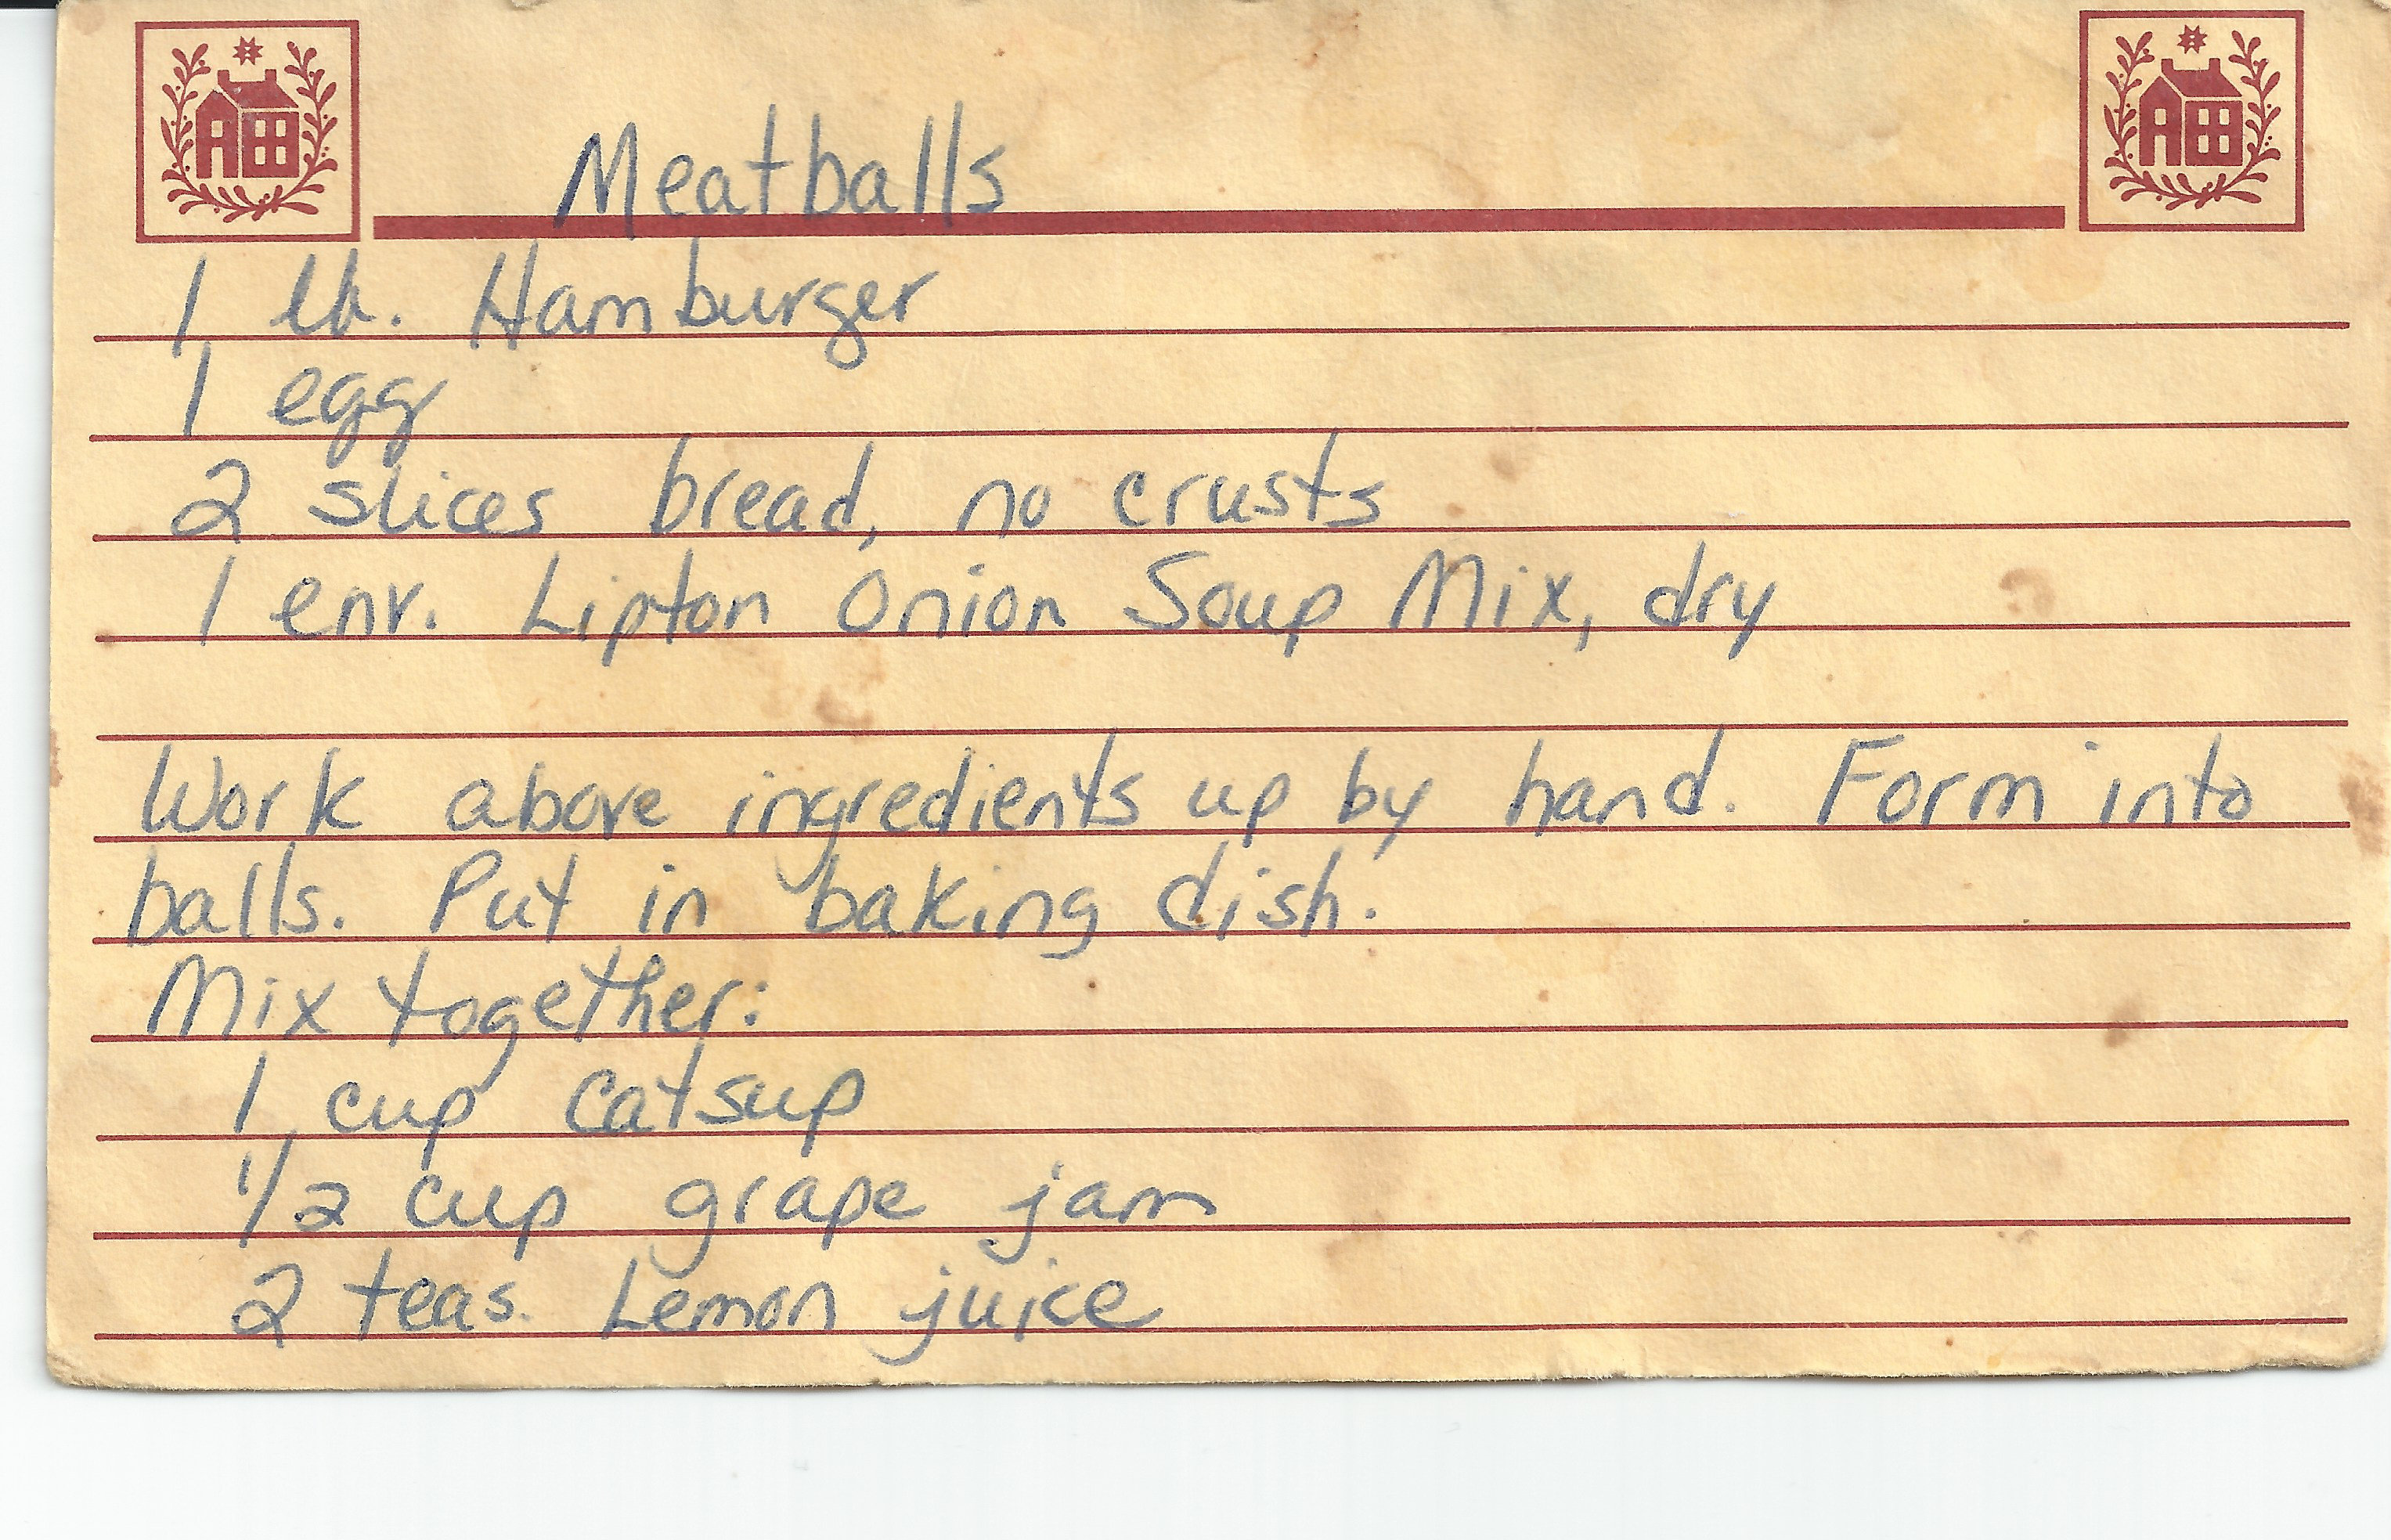 Meatballs
1 lb. Hamburger
1 egg
2 slices bread, no crusts
1 env. Lipton Onion Soup Mix, dry
Work above ingredients up by hand. Form into
balls. Put in baking dish.
Mix together:
1 cup catsup
1/2 cup grape jam
2 teas. Lemon juice